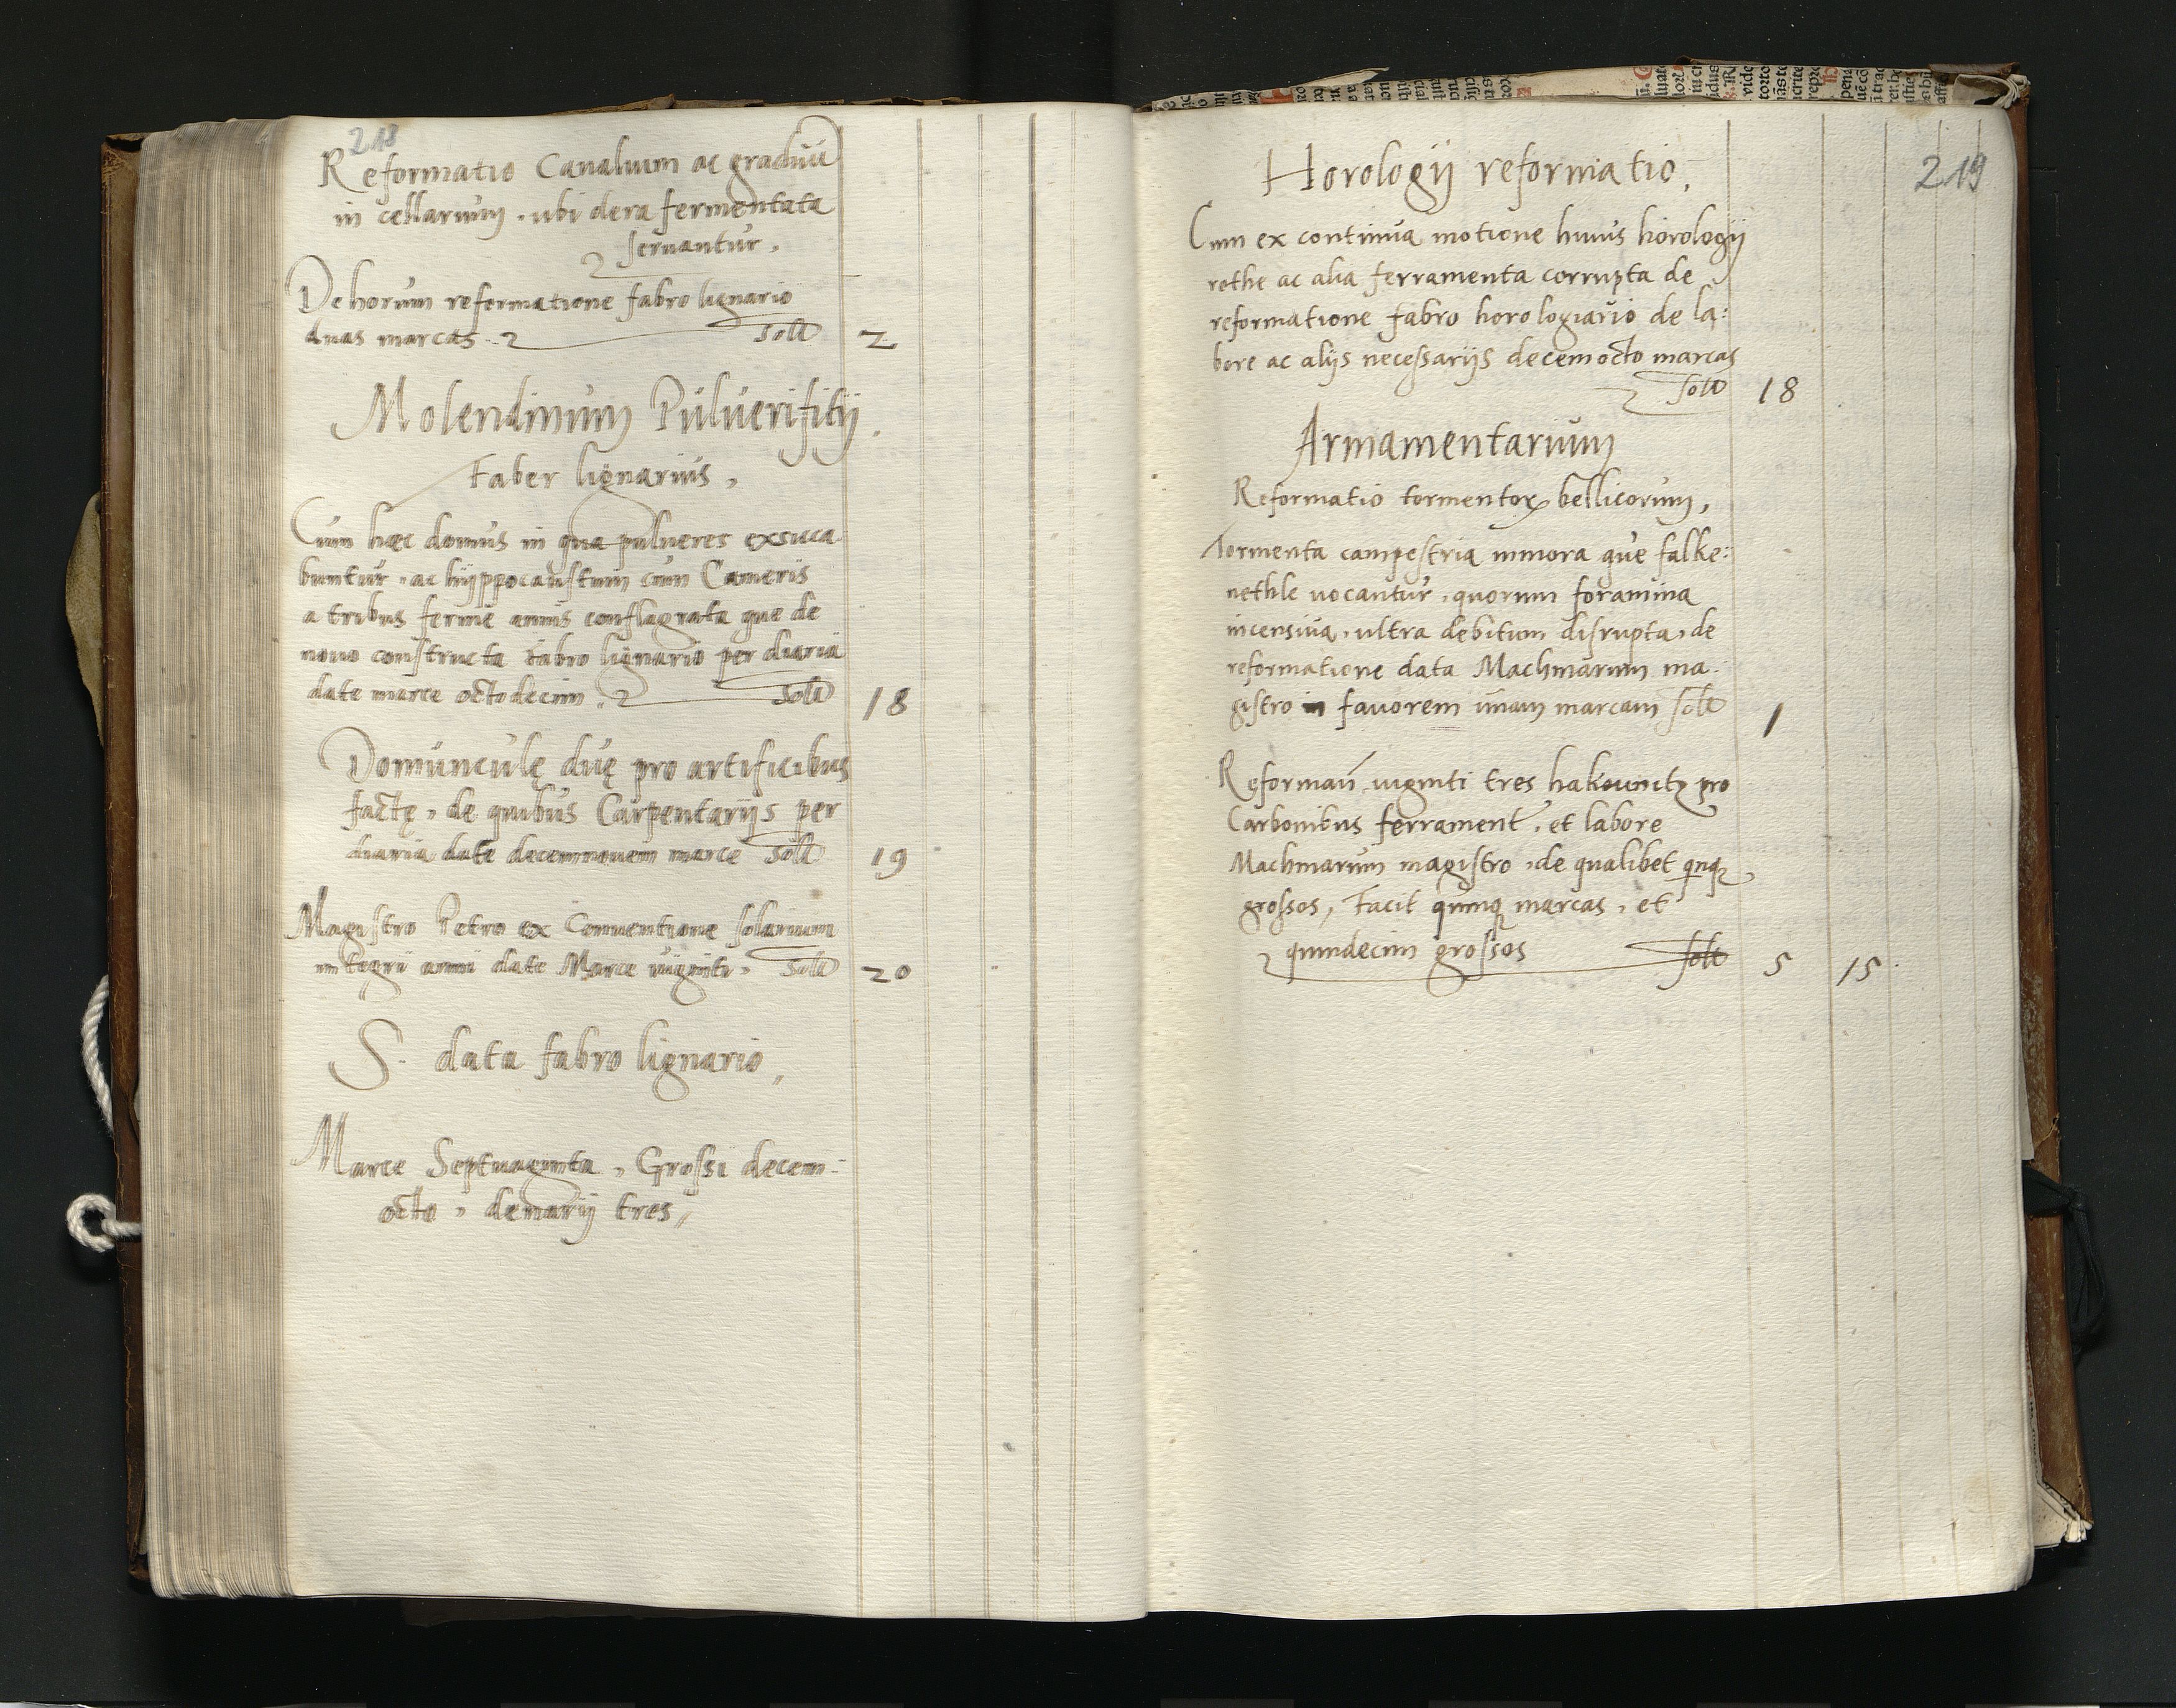 218
Reformatio Canalium ac graduū
in cellarium. ubi dera fermentata
servantur.
De horum reformatione fabro lignario
duas marcas. solt 2
Molendinum Pulverifitij.
Faber lignarius,
Cum hæc domus in qua pulveres exsicca
buntur, ac hÿppocaustum cum Cameris
a tribus ferme annis conflagrata que de
novo constructa fabro lignario per diaria
date marce octodecim. solt 18
Domunculę duę pro artificibus
factę, de quibus Carpentarijs per
diaria date decemnovem marce solt 19
Magistro Petro ex Conventione solarium
integri anni date Marce viginti, solt 20
S. data fabro lignario,
Marce Septuaginta, Grossi decem-
octo, denarij tres,
219
Horologij reformatio,
Cum ex continua motione huius horologij
rothe ac alia ferramenta corrupta de
reformatione fabro horologiario de la:
bore ac alijs necessarijs decemocto marcas
solt 18
Armamentarium
Reformatio tormentoꝝ bellicorum,
Tormenta campestria minora que falke:
nethle vocantur, quorum foramina
incensiva, ultra debitum disrupta, de
reformatione data Machinarum ma-
gistro in favorem unam marcam solt 1
Reformaṅ viginti tres hakownitz pro
Carbonibus ferrament, et labore
Machinarum magistro, de qualibet qnqꝫ
grossos, Facit quinqꝫ marcas, et
quindecim grossos solt 5 15